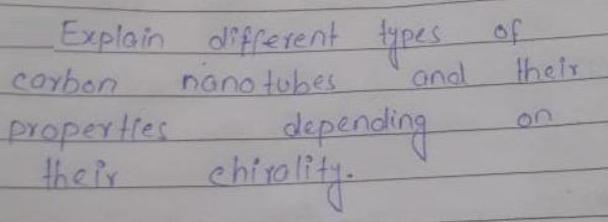 Explain different types of
carbon nanotubes and their
properties depending on
their chirality.